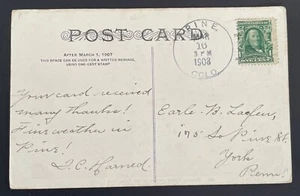 POST CARD
AFTER MARCH 1, 1907
THIS SPACE CAN BE USED FOR A WRITTEN MESSAGE,
USING ONE-CENT STAMP
PINE
MAR
16
3 PM
1908
COLO.
Your card received
many Thanks!
Fine weather in
Pine!
Harned
Earle B.
So Pine St.
York
Penn.